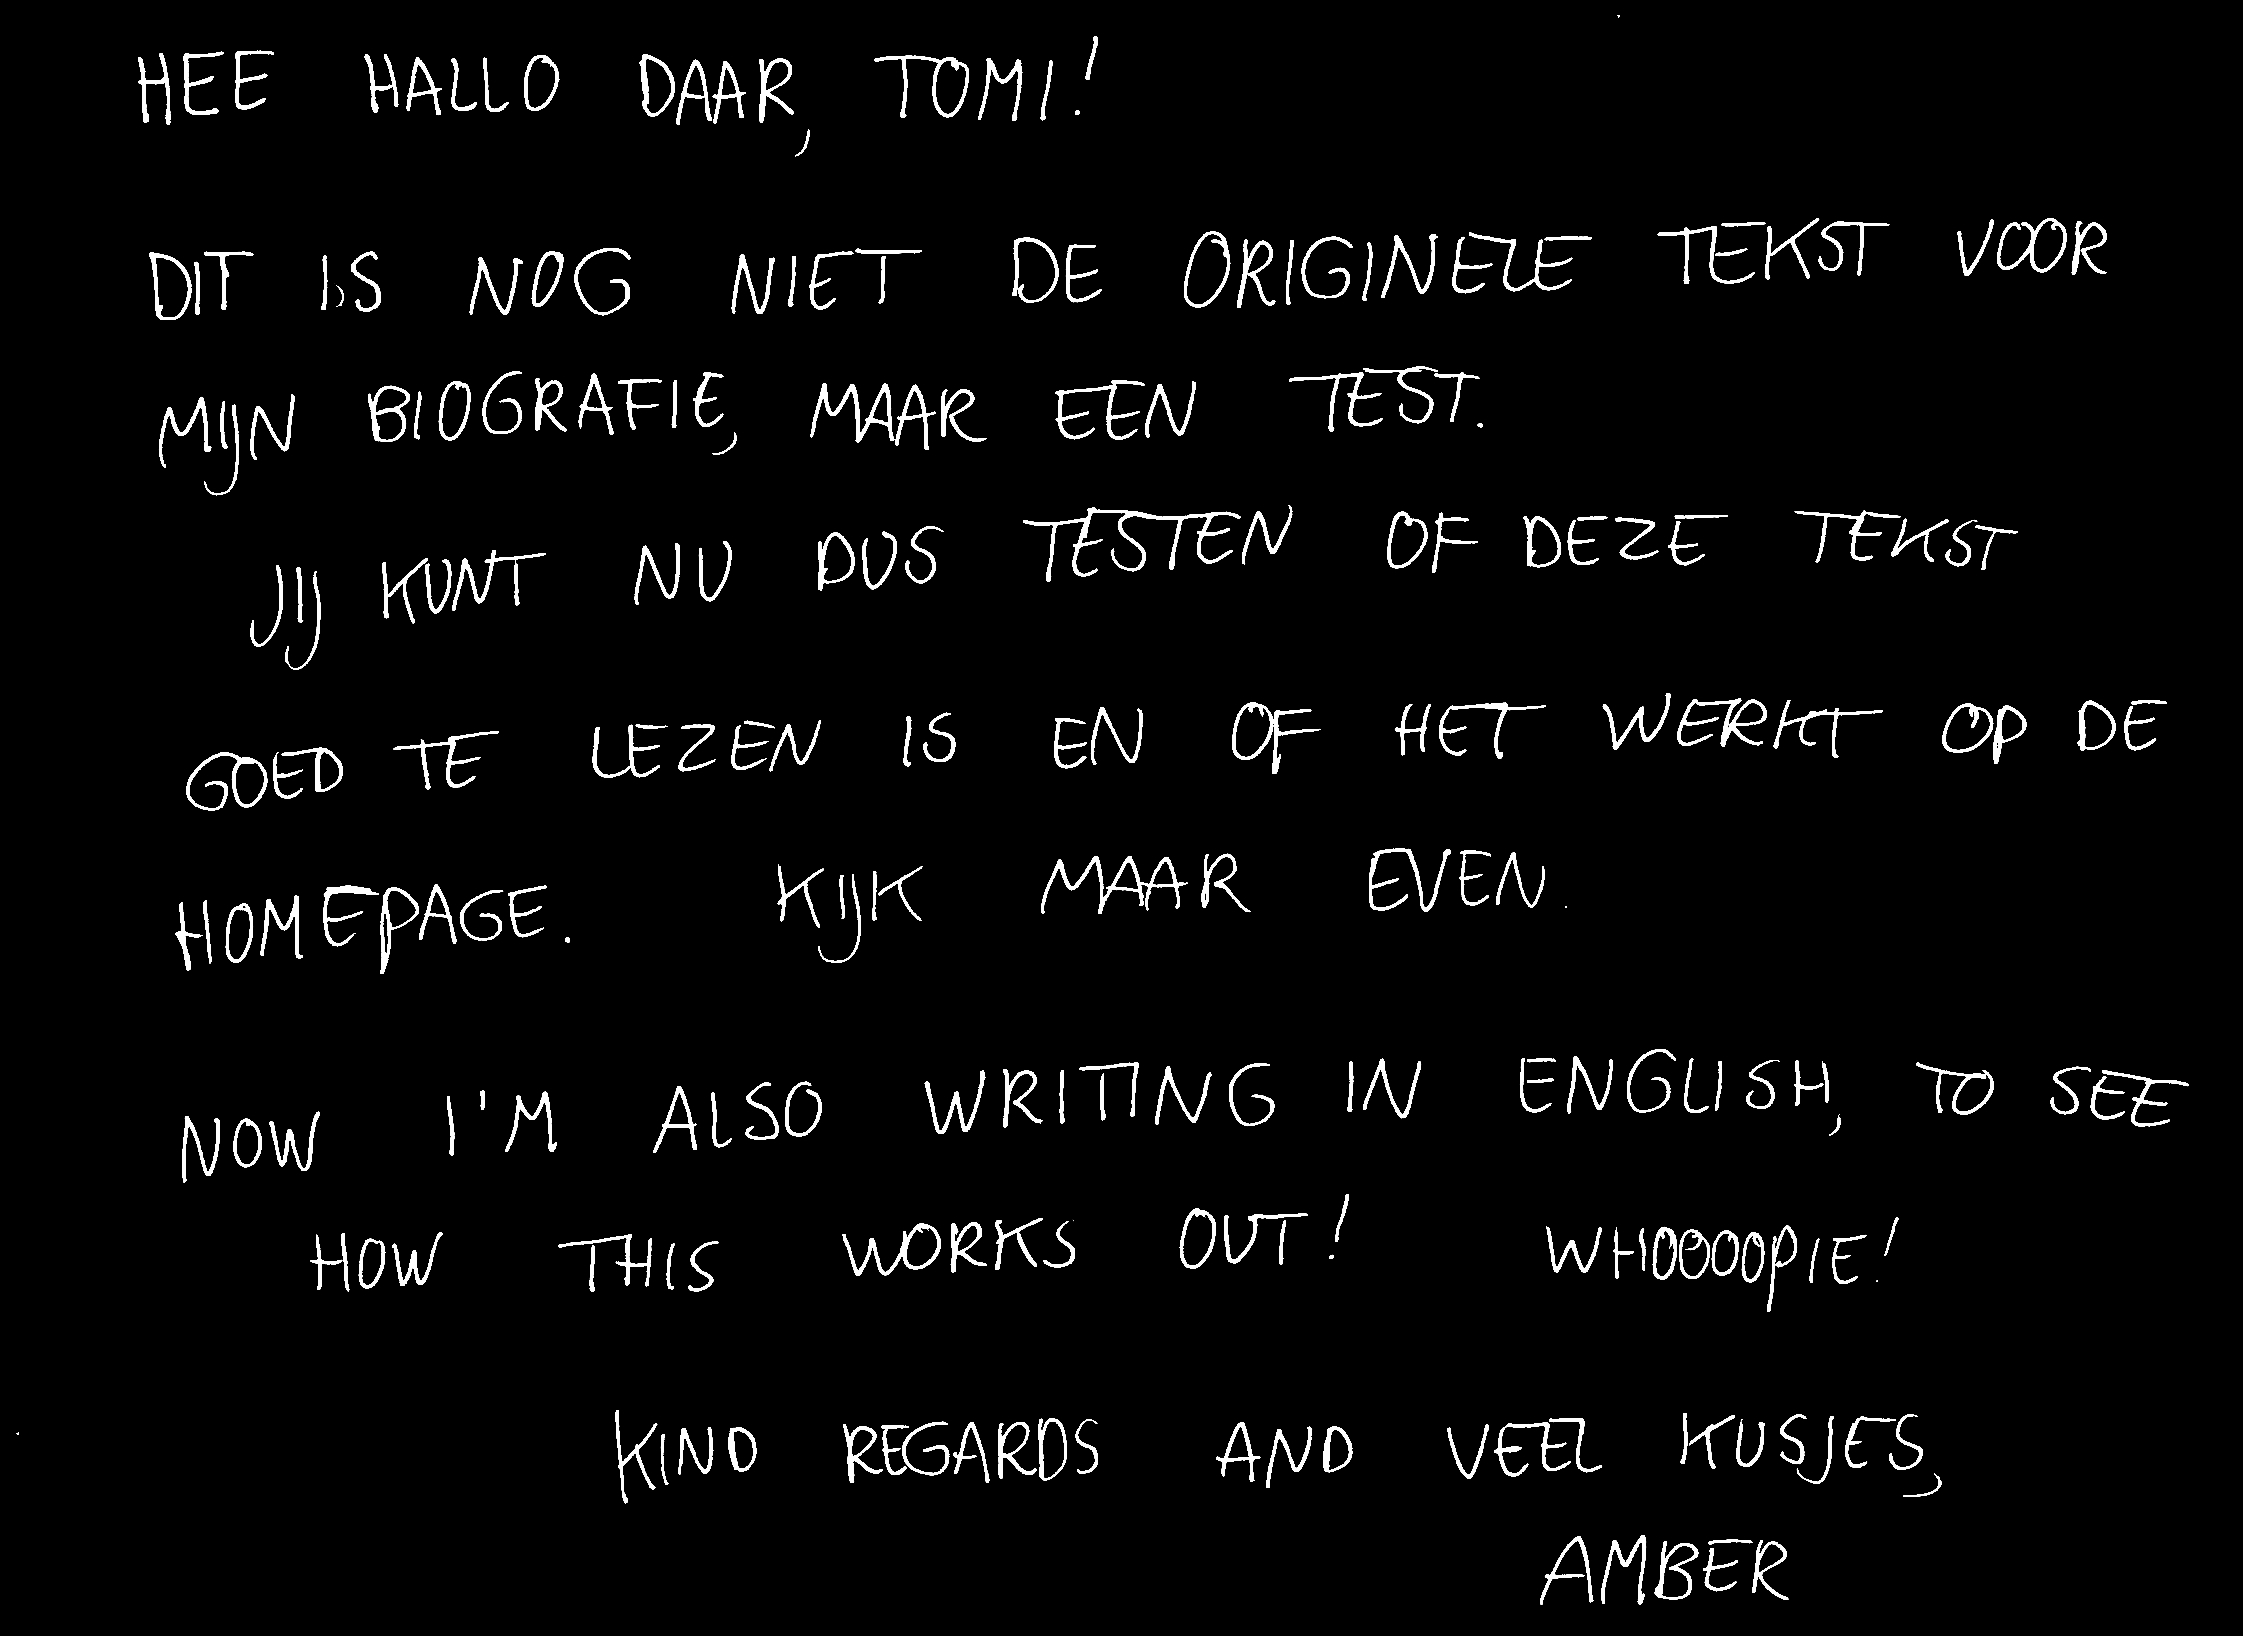 HEE HALLO DAAR, TOMI!
DIT IS NOG NIET DE ORIGINELE TEKST VOOR
MIJN BIOGRAFIE, MAAR EEN TEST.
JIJ KUNT NU DUS TESTEN OF DEZE TEKST
GOED TE LEZEN IS EN OF HET WERKT OP DE
HOMEPAGE. KIJK MAAR EVEN.
NOW I'M ALSO WRITING IN ENGLISH, TO SEE
HOW THIS WORKS OUT! WHOOOOPIE!
KIND REGARDS AND VEEL KUSJES,
AMBER